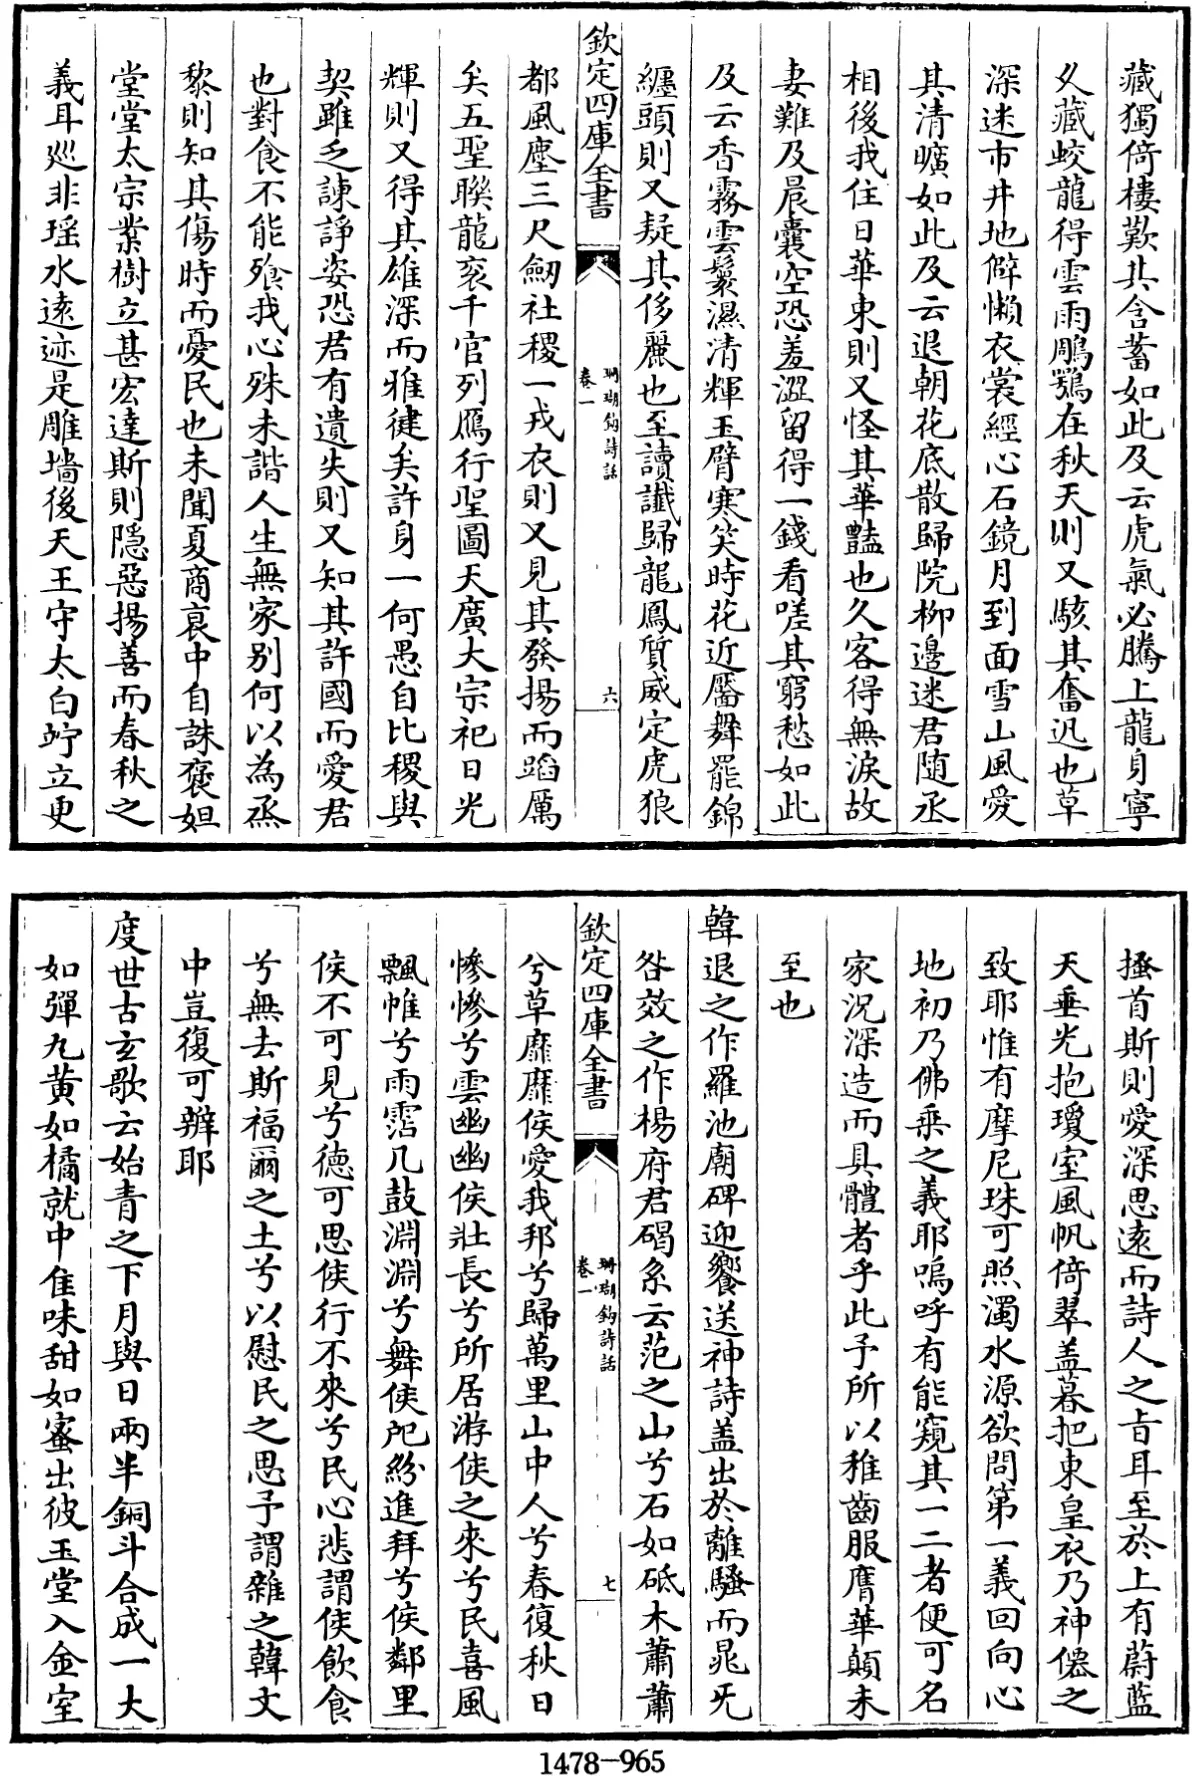 藏獨倚樓歎其含蓄如此及云虎氣必騰上龍身寧
乆藏蛟龍得雲雨鵰鶚在秋天則又駭其奮迅也草
深迷市井地僻懶衣裳經心石鏡月到面雪山風愛
其清曠如此及云退朝花底散歸院柳邊迷君隨丞
相後我住日華東則又怪其華豔也久客得無淚故
妻難及晨囊空恐羞澀留得一錢看嗟其窮愁如此
及云香霧雲鬟濕清輝玉臂寒笑時花近靨舞罷錦
纏頭則又疑其侈麗也至讀䜟歸龍鳳質威定虎狼
欽定四庫全書
珊瑚鉤詩話
卷一
六
都風塵三尺劒社稷一戎衣則又見其發揚而蹈厲
矣五聖聨龍衮千官列鴈行聖圖天廣大宗祀日光
輝則又得其雄深而雅健矣許身一何愚自比稷與
契雖乏諫諍姿恐君有遺失則又知其許國而愛君
也對食不能飱我心殊未諧人生無家别何以為烝
黎則知其傷時而憂民也未聞夏商衰中自誅褒妲
堂堂太宗業樹立甚宏達斯則隱惡揚善而春秋之
義耳廵非瑶水逺迹是雕墻後天王守太白竚立更
搔首斯則愛深思逺而詩人之㫖耳至於上有蔚藍
天垂光抱瓊室風帆倚翠盖暮把東皇衣乃神僊之
致耶惟有摩尼珠可照濁水源欲問第一義回向心
地初乃佛乗之義耶嗚呼有能窺其一二者便可名
家況深造而具體者乎此予所以稚齒服膺華顛未
至也
韓退之作羅池廟碑迎饗送神詩盖出於離騷而晁旡
咎效之作楊府君碣系云范之山兮石如砥木蕭蕭
欽定四庫全書
珊瑚鉤詩話
卷一
七
兮草靡靡侯愛我邦兮歸萬里山中人兮春復秋日
慘慘兮雲幽幽侯壯長兮所居游侯之來兮民喜風
飄帷兮雨霑几鼓淵淵兮舞侯戺紛進拜兮侯鄰里
侯不可見兮徳可思侯行不來兮民心悲謂侯飲食
兮無去斯福爾之土兮以慰民之思予謂雜之韓文
中豈復可辨耶
度世古玄歌云始青之下月與日兩半銅斗合成一大
如彈丸黄如橘就中隹味甜如蜜出彼玉堂入金室
1478-965